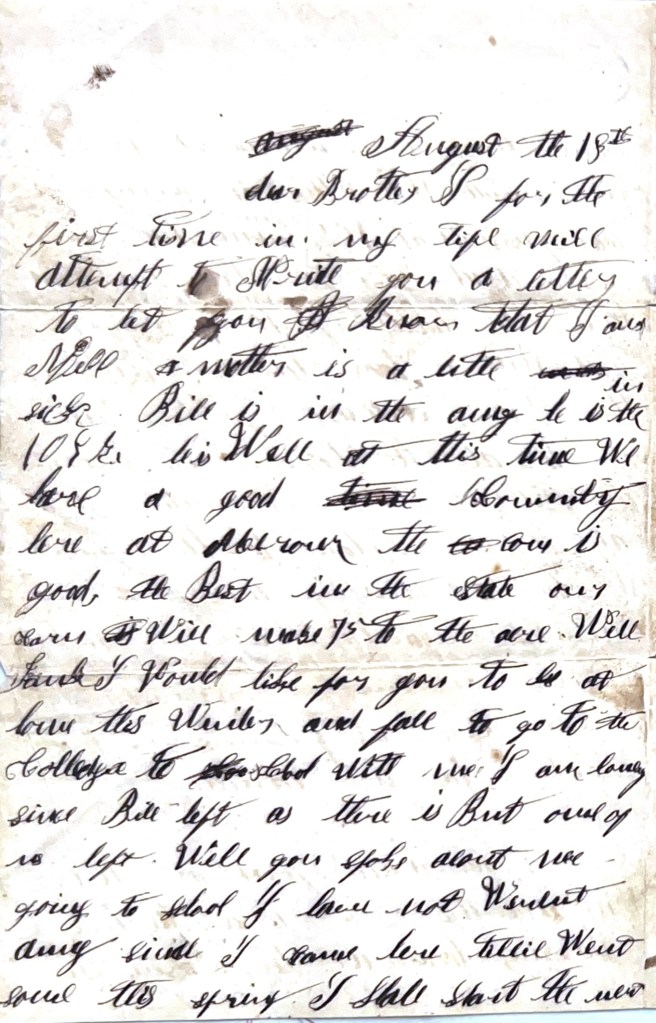 August August the 18th
dear Brother I for the
first time in my life will
attempt to Write you a letter
to let you Know that I am
Well mother is a little
sick Bill is in the army he is in the
10 his Well at this time We
have a good Comunity
here at the corn is
good, the Best in the state our
corn Will make 75 to the acre Well
I Would like for you to be at
home this Winter and fall to go to the
Colledge to School With me I am lonely
since Bill left as there is But one of
us left. Well you spoke about me
going to School I have not Wendnt
any since I came here Went
some this spring I Shall start the new